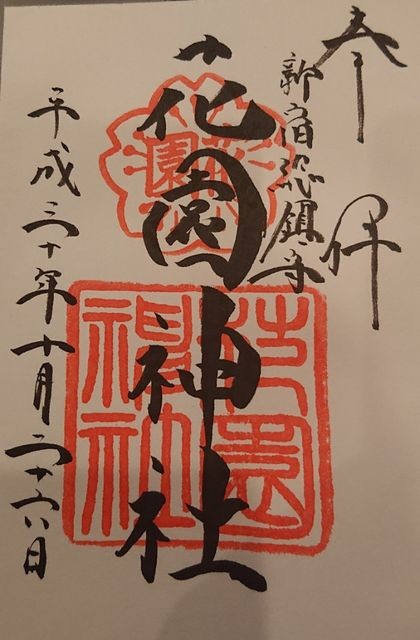 参拝
新宿総鎮守
花園神社
花園
花園
神社
平成三十年十月二十六日